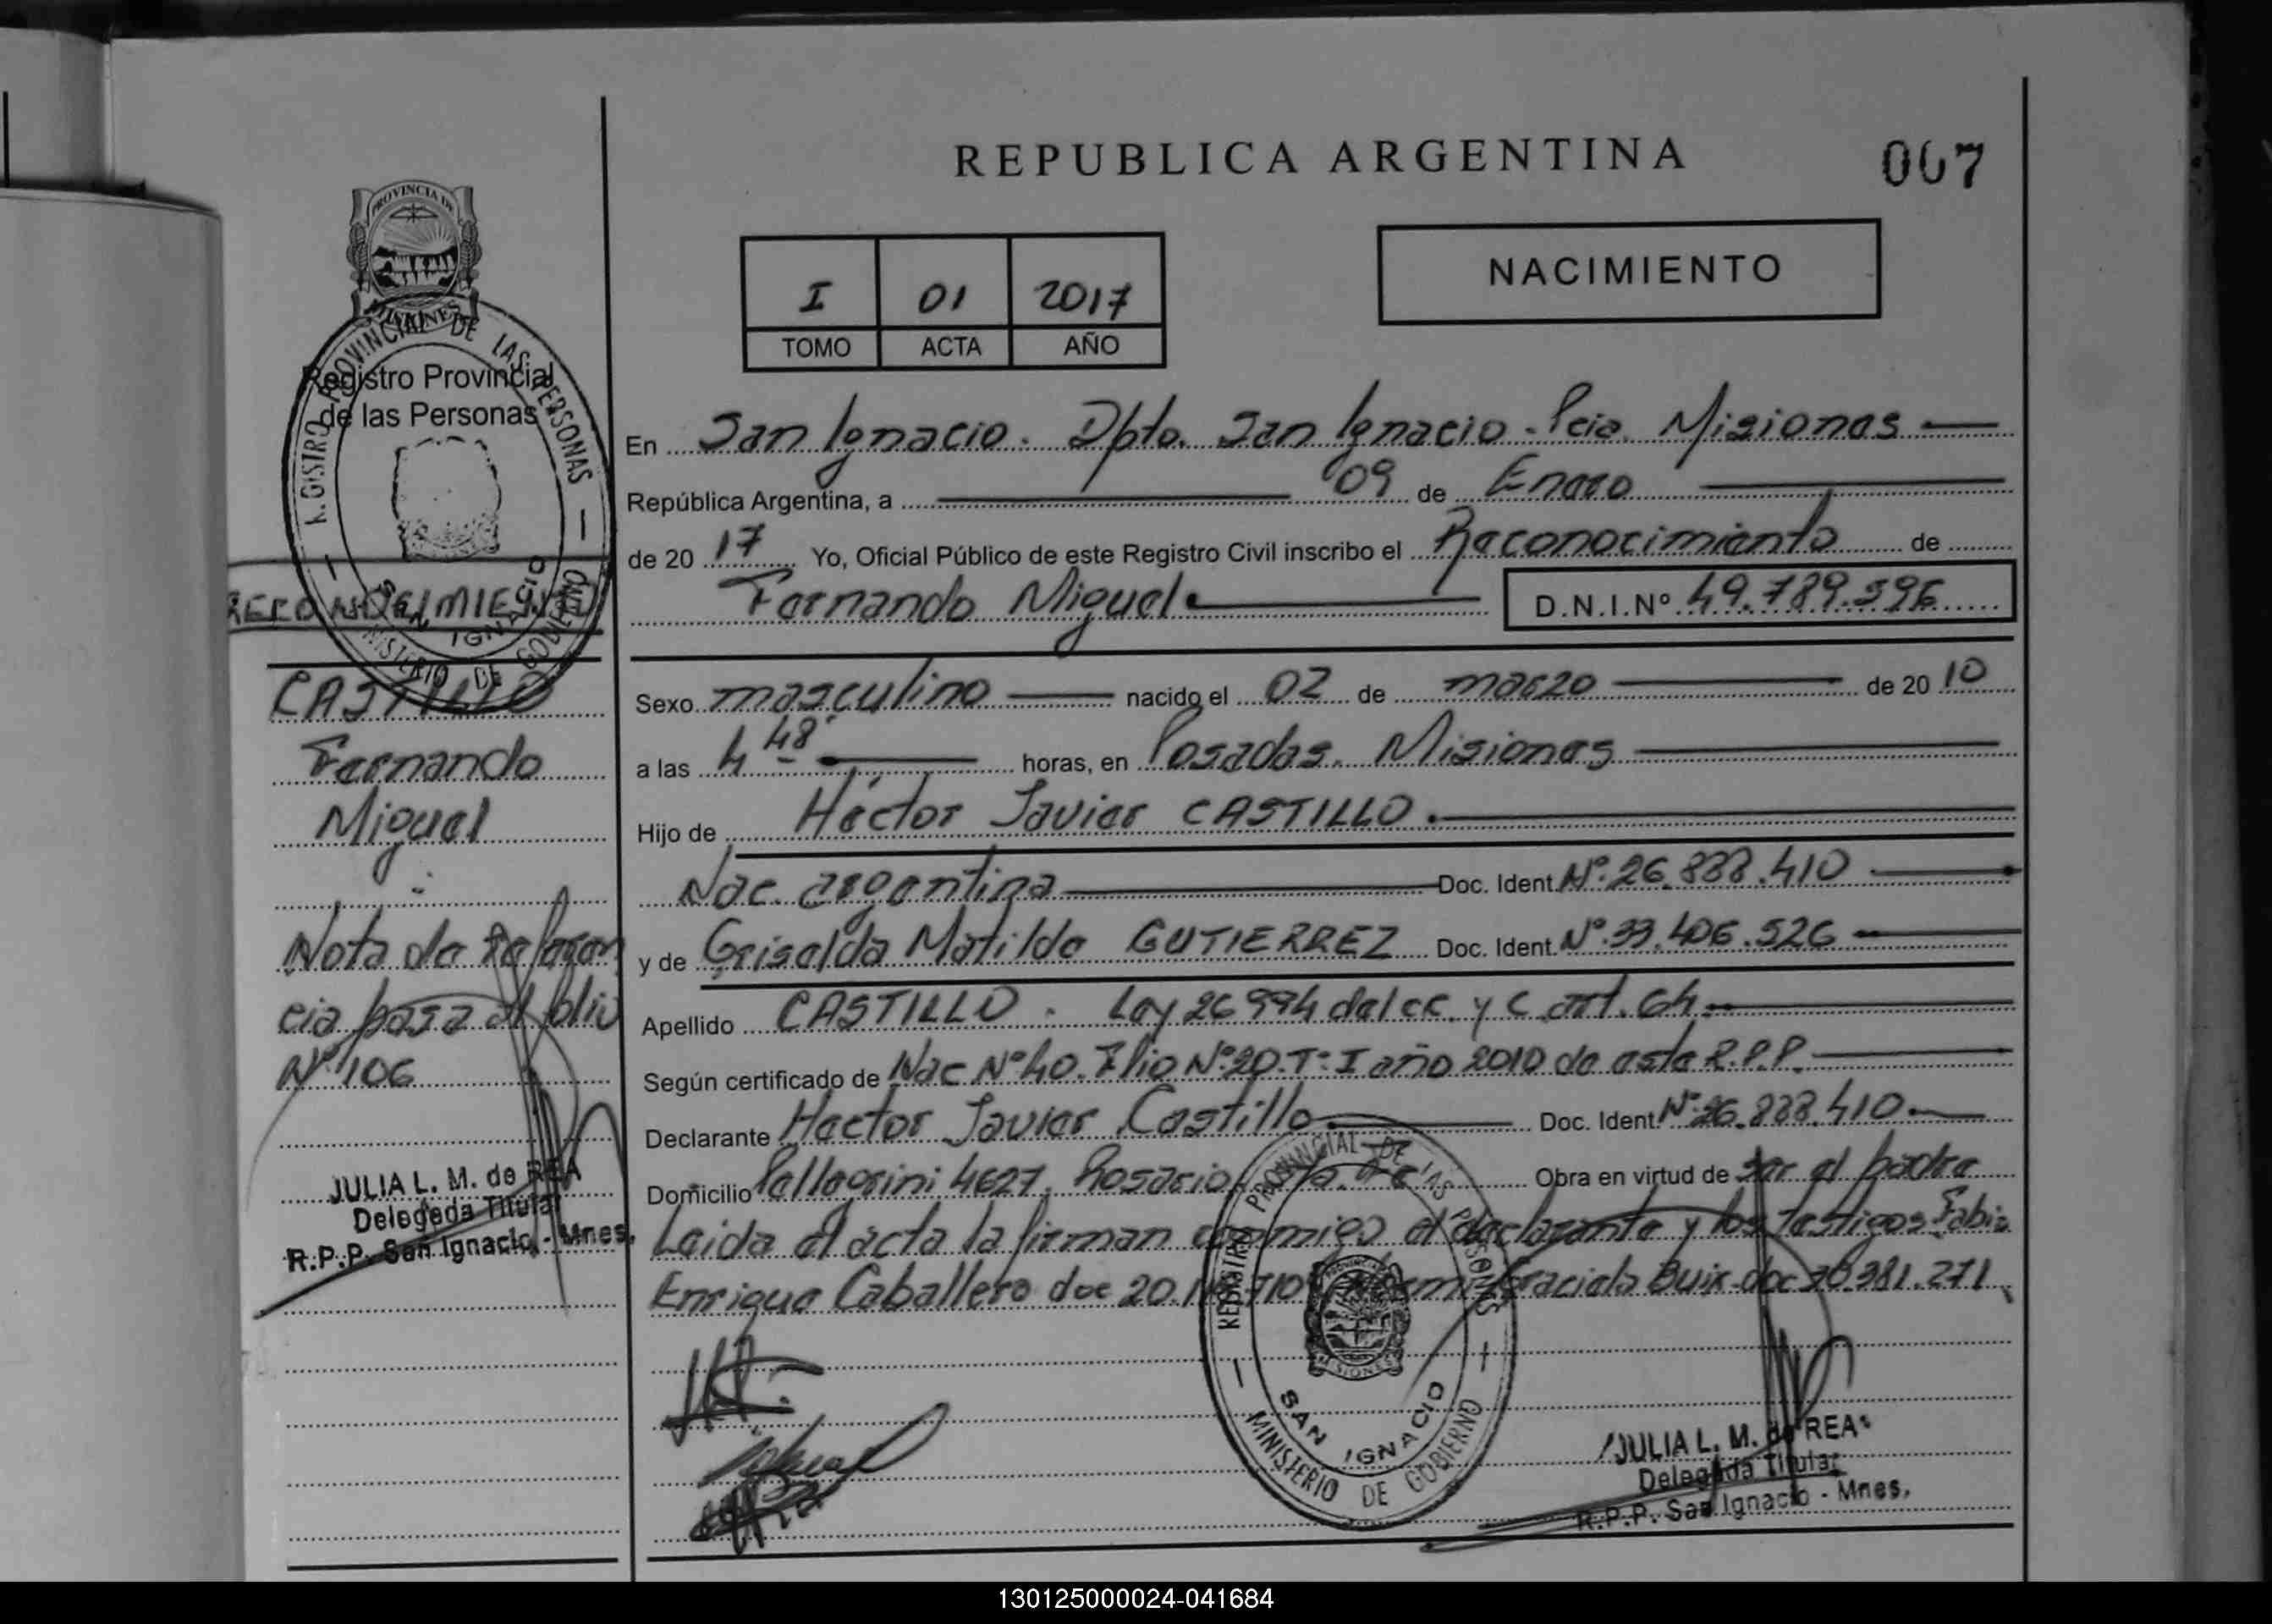 REPUBLICA ARGENTINA
007
PROVINCIA DE
MISIONES
Registro Provincial
de las Personas
REGISTRO PROVINCIAL DE LAS PERSONAS
SAN IGNACIO
MINISTERIO DE GOBIERNO
I 01 2017
TOMO ACTA AÑO
NACIMIENTO
En San Ignacio. Dpto. San Ignacio - Pcia. Misiones
República Argentina, a 09 de Enero
de 20 17 Yo, Oficial Público de este Registro Civil inscribo el Reconocimiento de
Fernando Miguel
D.N.I.Nº 49.789.596
Sexo masculino nacido el 02 de marzo de 20 10
a las 4 48' horas, en Posadas. Misiones
Hijo de Héctor Javier CASTILLO.
Nac. argentina Doc. Ident. Nº. 26.888.410
y de Griselda Matilde GUTIERREZ Doc. Ident. Nº. 33.406.526
Apellido CASTILLO. Ley 26994 del CC. y C art. 64.
Según certificado de Nac Nº 40. Flio Nº 20. T: I año 2010 de este R.P.P.
Declarante Hector Javier Castillo Doc. Ident. Nº. 26.888.410.
Domicilio Pellegrini 4627. Rosario Obra en virtud de ser el padre
Leida el acta la firman conmigo el declarante y los testigos Fabio
Enrique Caballero doc 20. Graciela doc 381.271
RECONOCIMIENTO
CASTILLO
Fernando
Miguel
Nota de Referen
cia pasa al folio
Nº 106
JULIA L. M. de REA
Delegada Titular
R.P.P. San Ignacio - Mnes.
REGISTRO PROVINCIAL DE LAS PERSONAS
SAN IGNACIO
MINISTERIO DE GOBIERNO
JULIA L. M. de REA
Delegada Titular
R.P.P. San Ignacio - Mnes.
130125000024-041684